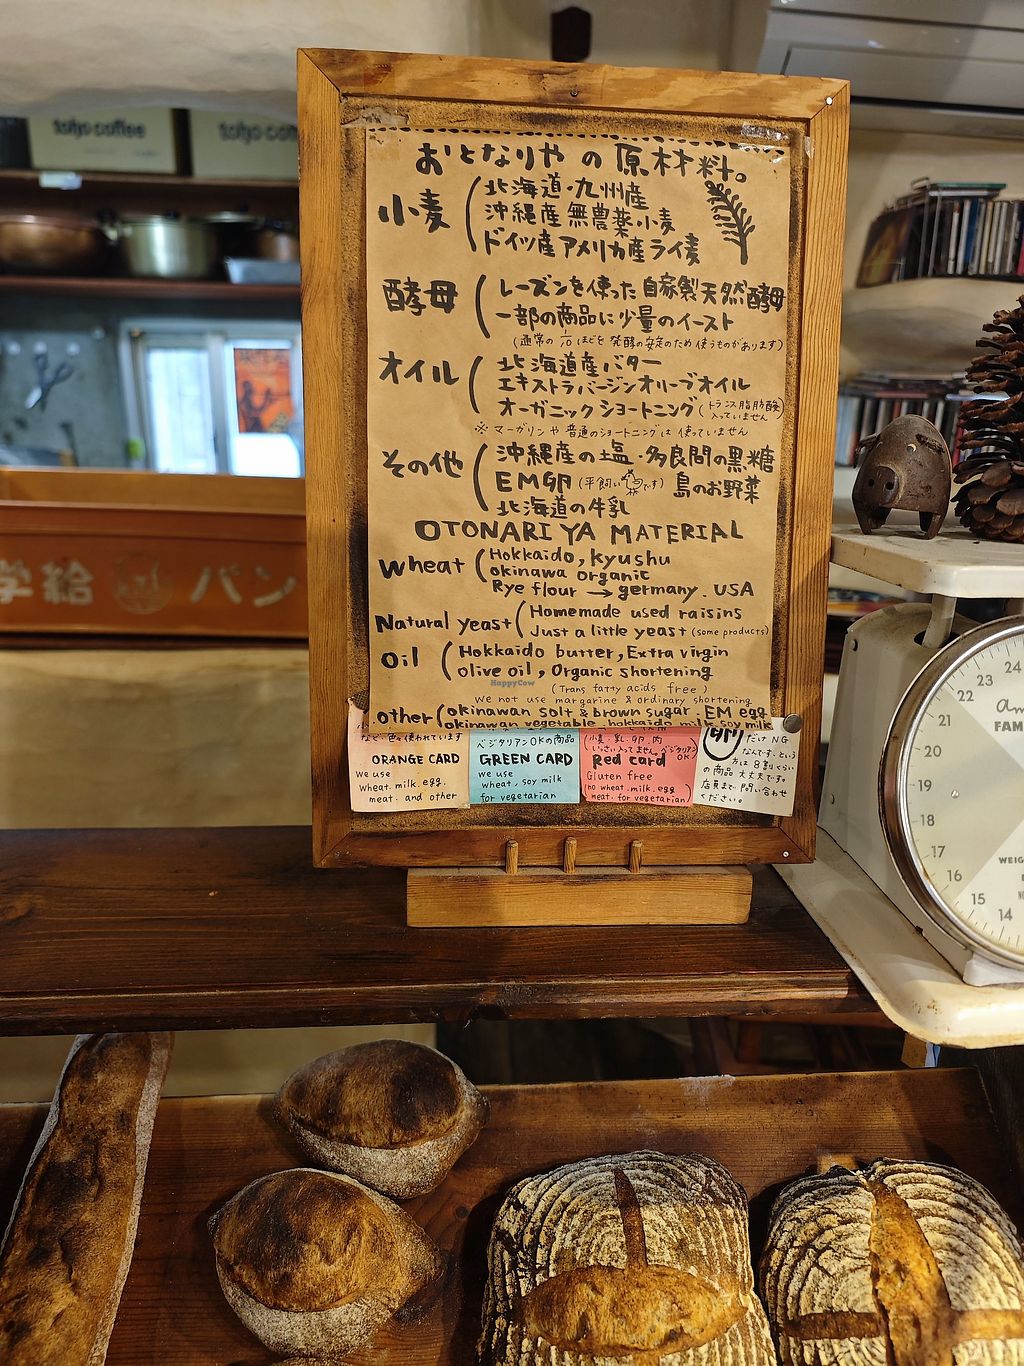 tokyo coffee
おとなりやの原材料。
小麦
北海道・九州産
沖縄産無農薬小麦
ドイツ産アメリカ産ライ麦
酵母
レーズンを使った自家製天然酵母
一部の商品に少量のイースト
(通常の ほどを発酵の安定のため使うものがあります)
オイル
北海道産バター
エキストラバージンオリーブオイル
オーガニックショートニング(トランス脂肪酸入っていません)
※マーガリンや普通のショートニングは使っていません
その他
沖縄産の塩・多良間の黒糖
EM卵(平飼いです) 島のお野菜
北海道の牛乳
OTONARIYA MATERIAL
Wheat
Hokkaido, kyushu
okinawa organic
Rye flour → germany. USA
Natural yeast
Homemade used raisins
Just a little yeast (some products)
Oil
Hokkaido butter, Extra virgin
olive oil, Organic shortening
HappyCow
(Trans fatty acids free)
We not use margarine & ordinary shortening
other
okinawan solt & brown sugar. EM egg
okinawan vegetable. hokkaido milk. soy milk
など、色々使われています
ORANGE CARD
we use
wheat. milk. egg.
meat. and other
ベジタリアンOKの商品
GREEN CARD
we use
wheat, soy milk
for vegetarian
(小麦、乳、卵、肉
いっさい入ってません。ベジタリアンOK)
Red card
Gluten free
(no wheat. milk. egg
meat. for vegetarian)
卵だけNG
なんです。という
方は8割くらい
の商品大丈夫です。
店員まで問い合わせ
ください。
学給 パン
24
23
22
21
20
19
18
17
16
15
14
FAM
WEIG